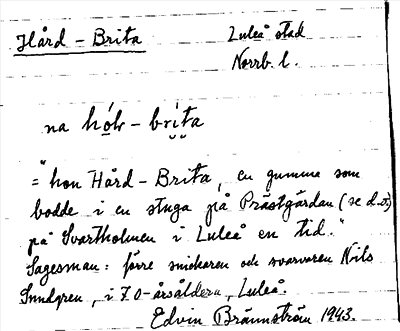 Hård - Brita
Luleå stad
Norrb. l.
na hó̱lr - bri̱ta
="hon Hård - Brita, en gumma som
bodde i en stuga på Prästgårdan (se d.o)
på Svartholmen i Luleå en tid."
Sagesman: förre snickaren och svarvaren Nils
Sundgren, i 70-årsåldern, Luleå.
Edvin Brännström 1943.